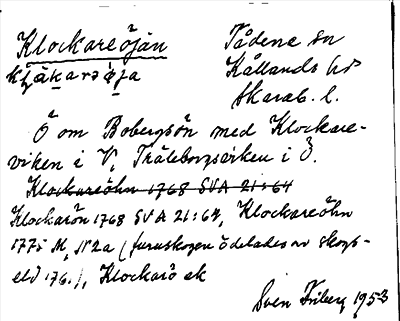 Klockareöjän
Tådene sn
Kållands hd
Skarab. l.
Ö om Bobergsön med Klockare-
viken i V, Träleborgsviken i Ö.
Klockareöhn 1768 SVA 21:64
Klockarön 1768 SVA 21:64, Klockareöhn
1775 M, N2a (furuskogen ödelades av skogs-
eld 176.), Klockarö ek
Sven Friberg 1953